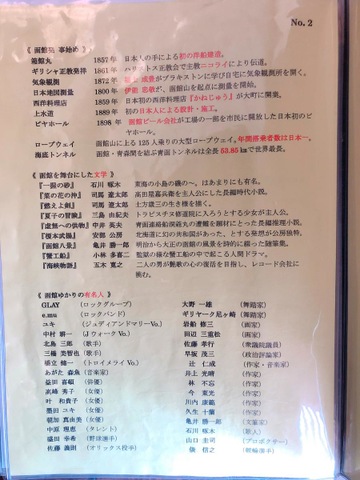 No. 2
《 函館発 事始め 》
箱館丸 1857年 日本人の手による初の洋船建造。
ギリシャ正教発祥 1861年 ハリストス正教会で主教ニコライにより伝道。
気象観測 1872年 が、ブラキストンに学び自宅に気象観測所を開く。
日本地図測量 1800年 伊能 忠敬が、函館山を起点に測量を開始。
西洋料理店 1859年 日本初の西洋料理店『かねじゅう』が大町に開業。
上水道 1889年 初の日本人による設計・施工。
ビヤホール 1898年 函館ビール会社が工場の一部を市民に開放した日本初のビヤホール。
ロープウェイ 函館山に上る125人乗りの大型ロープウェイ。年間搭乗者数は日本一。
海底トンネル 函館・青森間を結ぶ青函トンネルは全長53.85kmで世界最長。
《 函館を舞台にした文学 》
『一握の砂』 石川 啄木 東海の小島の磯の～、はあまりにも有名。
『菜の花の沖』 司馬 遼太郎 高田屋嘉兵衛を主人公にした長編時代小説。
『燃えよ剣』 司馬 遼太郎 土方歳三の生き様を描く。
『夏子の冒険』 三島 由紀夫 トラピスチヌ修道院に入ろうとする少女が主人公。
『虚無への供物』 中井 英夫 青函連絡船洞爺丸の遭難を題材にとった長編推理小説。
『榎本武揚』 安部 公房 北海道に幻の共和国があった、とする発想が公房独特。
『函館八景』 亀井 勝一郎 明治から大正の函館の風景を詩的に綴った随筆集。
『蟹工船』 小林 多喜二 監獄の様な蟹工船の中で起こる人間ドラマ。
『海峡物語』 五木 寛之 二人の男が艶歌の心の復活を目指し、レコード会社に挑む。
《 函館ゆかりの有名人 》
GLAY (ロックグループ) 大野 一雄 (舞踏家)
e.mu (ロックバンド) ギリヤーク尼ヶ崎 (舞踏家)
ユキ (ジュディアンドマリーVo.) 岩船 修三 (画家)
中村 耕一 (J ウォーク Vo.) 田辺 三重松 (画家)
北島 三郎 (歌手) 佐藤 孝行 (衆議院議員)
三橋 美智也 (歌手) 早坂 茂三 (政治評論家)
張立 健一 (トロイメライ Vo.) 辻 仁成 (作家・音楽家)
あがた 森魚 (音楽家) 井上 光晴 (作家)
益田 喜頓 (俳優) 林 不忘 (作家)
高峰 秀子 (女優) 今 東光 (作家)
叶 和貴子 (女優) 川内 康範 (作家)
墨田 ユキ (女優) 久生 十蘭 (作家)
朝加 真由美 (女優) 亀井 勝一郎 (文筆家)
中原 理恵 (タレント) 石川 啄木 (歌人)
盛田 幸希 (野球選手) 山口 圭司 (プロボクサー)
佐藤 義則 (オリックス投手) 信之 (競輪選手)